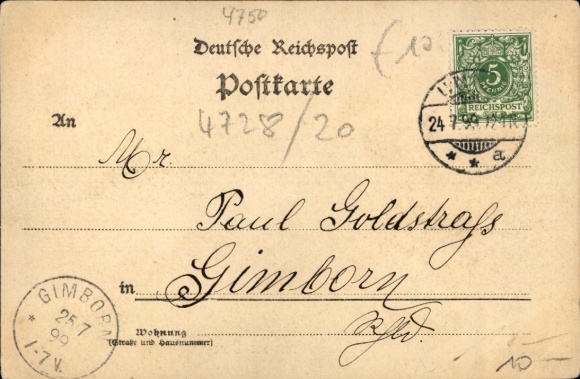 4750
Deutsche Reichspost
Postkarte
£10
5
REICHSPOST
24 7 99
a
4728/20
An
Mr.
Paul Goldstraß
in Gimborn
Rhld.
GIMBORN
25 7
99
1-7 V.
Wohnung
(Straße und Hausnummer)
10-